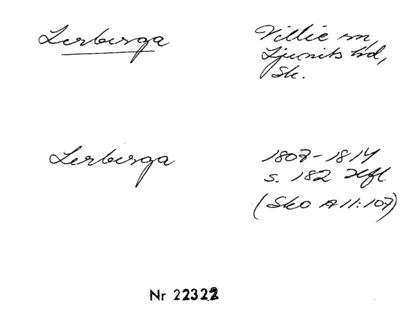 Lerberga
Villie sn,
Ljunits hd,
Sk.
Lerberga
1807-1814
s. 182 Hfl
(Sko A II:107)
Nr 22322